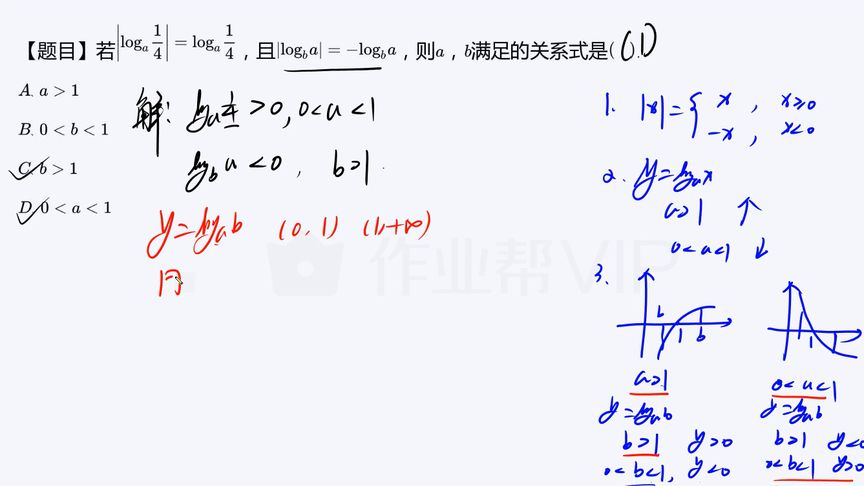 【题目】若|log_a 1/4| = log_a 1/4，且|log_b a| = −log_b a，则a，b满足的关系式是( C.D
A. a > 1
B. 0 < b < 1
C. b > 1
D. 0 < a < 1
解: log_a 1/4 > 0, 0<a<1
log_b a < 0, b>1.
y=log_a b (0,1) (1,+∞)
同
1. |x|={ x, x≥0
-x, x<0
2. y=log_a x
a>1 ↑
0<a<1 ↓
3.
b 1 b
1
a>1
y=log_a b
b>1 y>0
0<b<1, y<0
0<a<1
y=log_a b
b>1 y<0
0<b<1 y>0
作业帮VIP